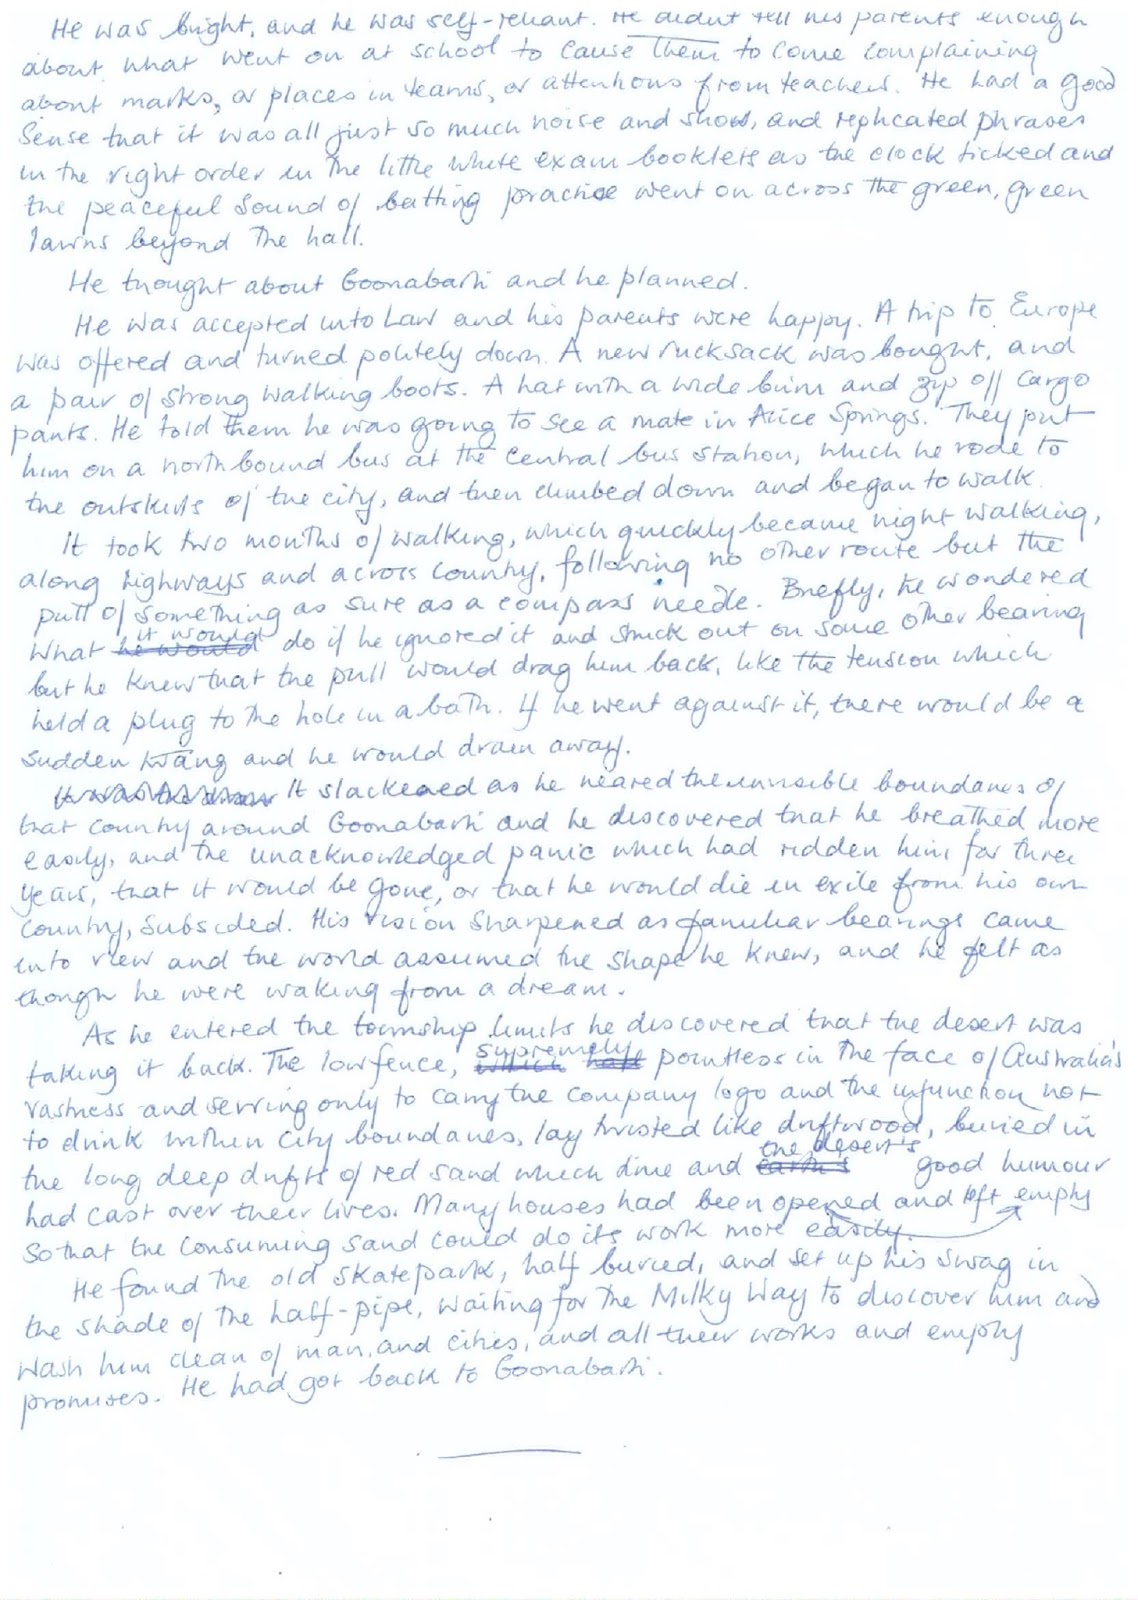 He was bright, and he was self-reliant. He didnt tell his parents enough
about what went on at school to cause them to come complaining
about marks, or places in teams, or attentions from teachers. He had a good
Sense that it was all just so much noise and show, and replicated phrases
in the right order in the little white exam booklets as the clock ticked and
the peaceful sound of batting practice went on across the green, green
lawns beyond the hall.
He thought about Goonabarri and he planned.
He was accepted into Law and his parents were happy. A trip to Europe
was offered and turned politely down. A new rucksack was bought, and
a pair of strong walking boots. A hat with a wide brim and zip off cargo
pants. He told them he was going to see a mate in Alice Springs. They put
him on a northbound bus at the central bus station, which he rode to
the outskirts of the city, and then climbed down and began to walk.
It took two months of walking, which quickly became night walking,
along highways and across country, following no other route but the
pull of something as sure as a compass needle. Briefly, he wondered
what it would do if he ignored it and struck out on some other bearing
but he knew that the pull would drag him back, like the tension which
held a plug to the hole in a bath. If he went against it, there would be a
sudden twang and he would drain away.
It slackened as he neared the invisible boundaries of
that country around Goonabarri and he discovered that he breathed more
easily, and the unacknowledged panic which had ridden him for three
years, that it would be gone, or that he would die in exile from his own
country, subsided. His vision sharpened as familiar bearings came
into view and the world assumed the shape he knew, and he felt as
though he were waking from a dream.
As he entered the township limits he discovered that the desert was
taking it back. The low fence, supremely pointless in the face of Australia's
vastness and serving only to carry the company logo and the injunction not
to drink within city boundaries, lay twisted like driftwood, buried in
the long deep drifts of red sand which time and the desert's good humour
had cast over their lives. Many houses had been opened and left empty
so that the consuming sand could do its work more easily.
He found the old skatepark, half buried, and set up his swag in
the shade of the half-pipe, waiting for the Milky Way to discover him and
wash him clean of man, and cities, and all their works and empty
promises. He had got back to Goonabarri.